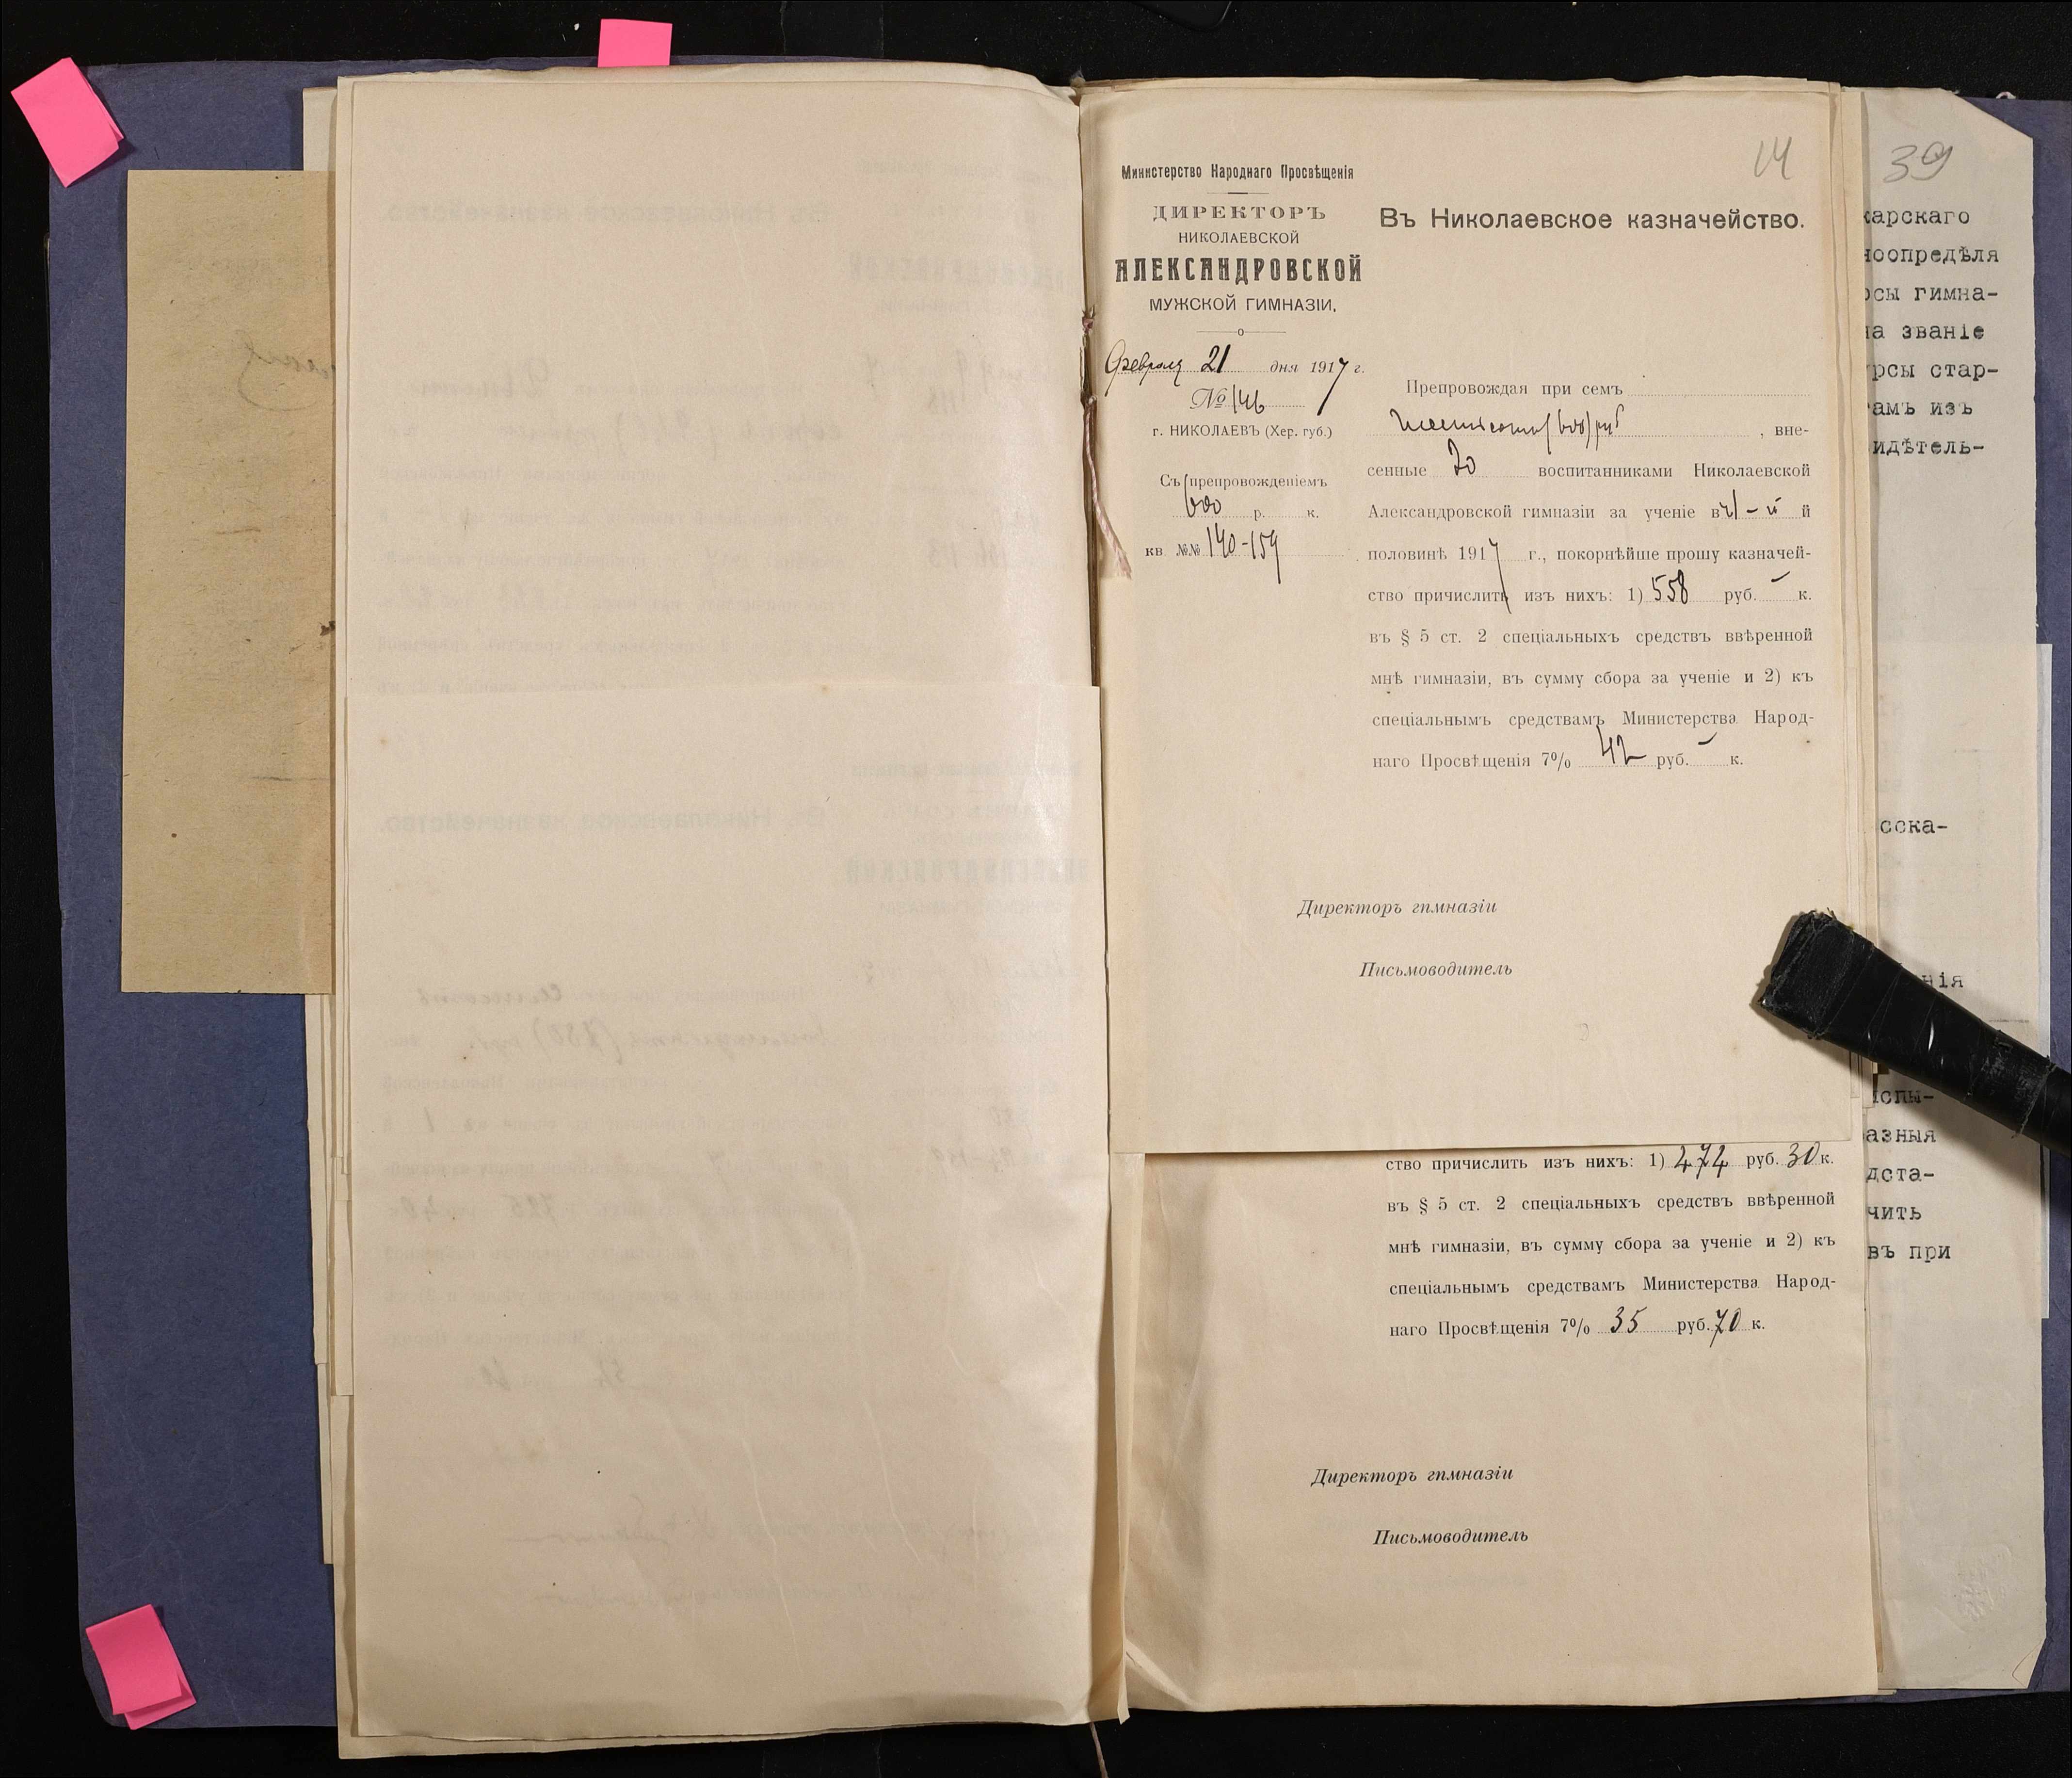 14
Министерство Народнаго Просвѣщенія
ДИРЕКТОРЪ
НИКОЛАЕВСКОЙ
АЛЕКСАНДРОВСКОЙ
МУЖСКОЙ ГИМНАЗІИ,
Февраля 21 дня 1917 г.
№ 146
г. НИКОЛАЕВЪ (Хер. губ.)
Съ препровожденіемъ
600 р. к.
кв. №№ 140-159
Въ Николаевское казначейство.
Препровождая при семъ
шестьсотъ (600) руб , вне-
сенные 20 воспитанниками Николаевской
Александровской гимназіи за ученіе въ 1-й й
половинѣ 1917 г., покорнѣйше прошу казначей-
ство причислить изъ нихъ: 1) 558 руб. – к.
въ § 5 ст. 2 спеціальныхъ средствъ ввѣренной
мнѣ гимназіи, въ сумму сбора за ученіе и 2) къ
спеціальнымъ средствамъ Министерства Народ-
наго Просвѣщенія 7% 42 руб. – к.
Директоръ гимназіи
Письмоводитель
ство причислить изъ нихъ: 1) 474 руб. 30 к.
въ § 5 ст. 2 спеціальныхъ средствъ ввѣренной
мнѣ гимназіи, въ сумму сбора за ученіе и 2) къ
спеціальнымъ средствамъ Министерства Народ-
наго Просвѣщенія 7% 35 руб. 70 к.
Директоръ гимназіи
Письмоводитель
39
карскаго
ноопредѣля
рсы гимна-
на званіе
урсы стар-
амъ изъ
идѣтель-
сска-
нія
спы-
азныя
дста-
чить
въ при